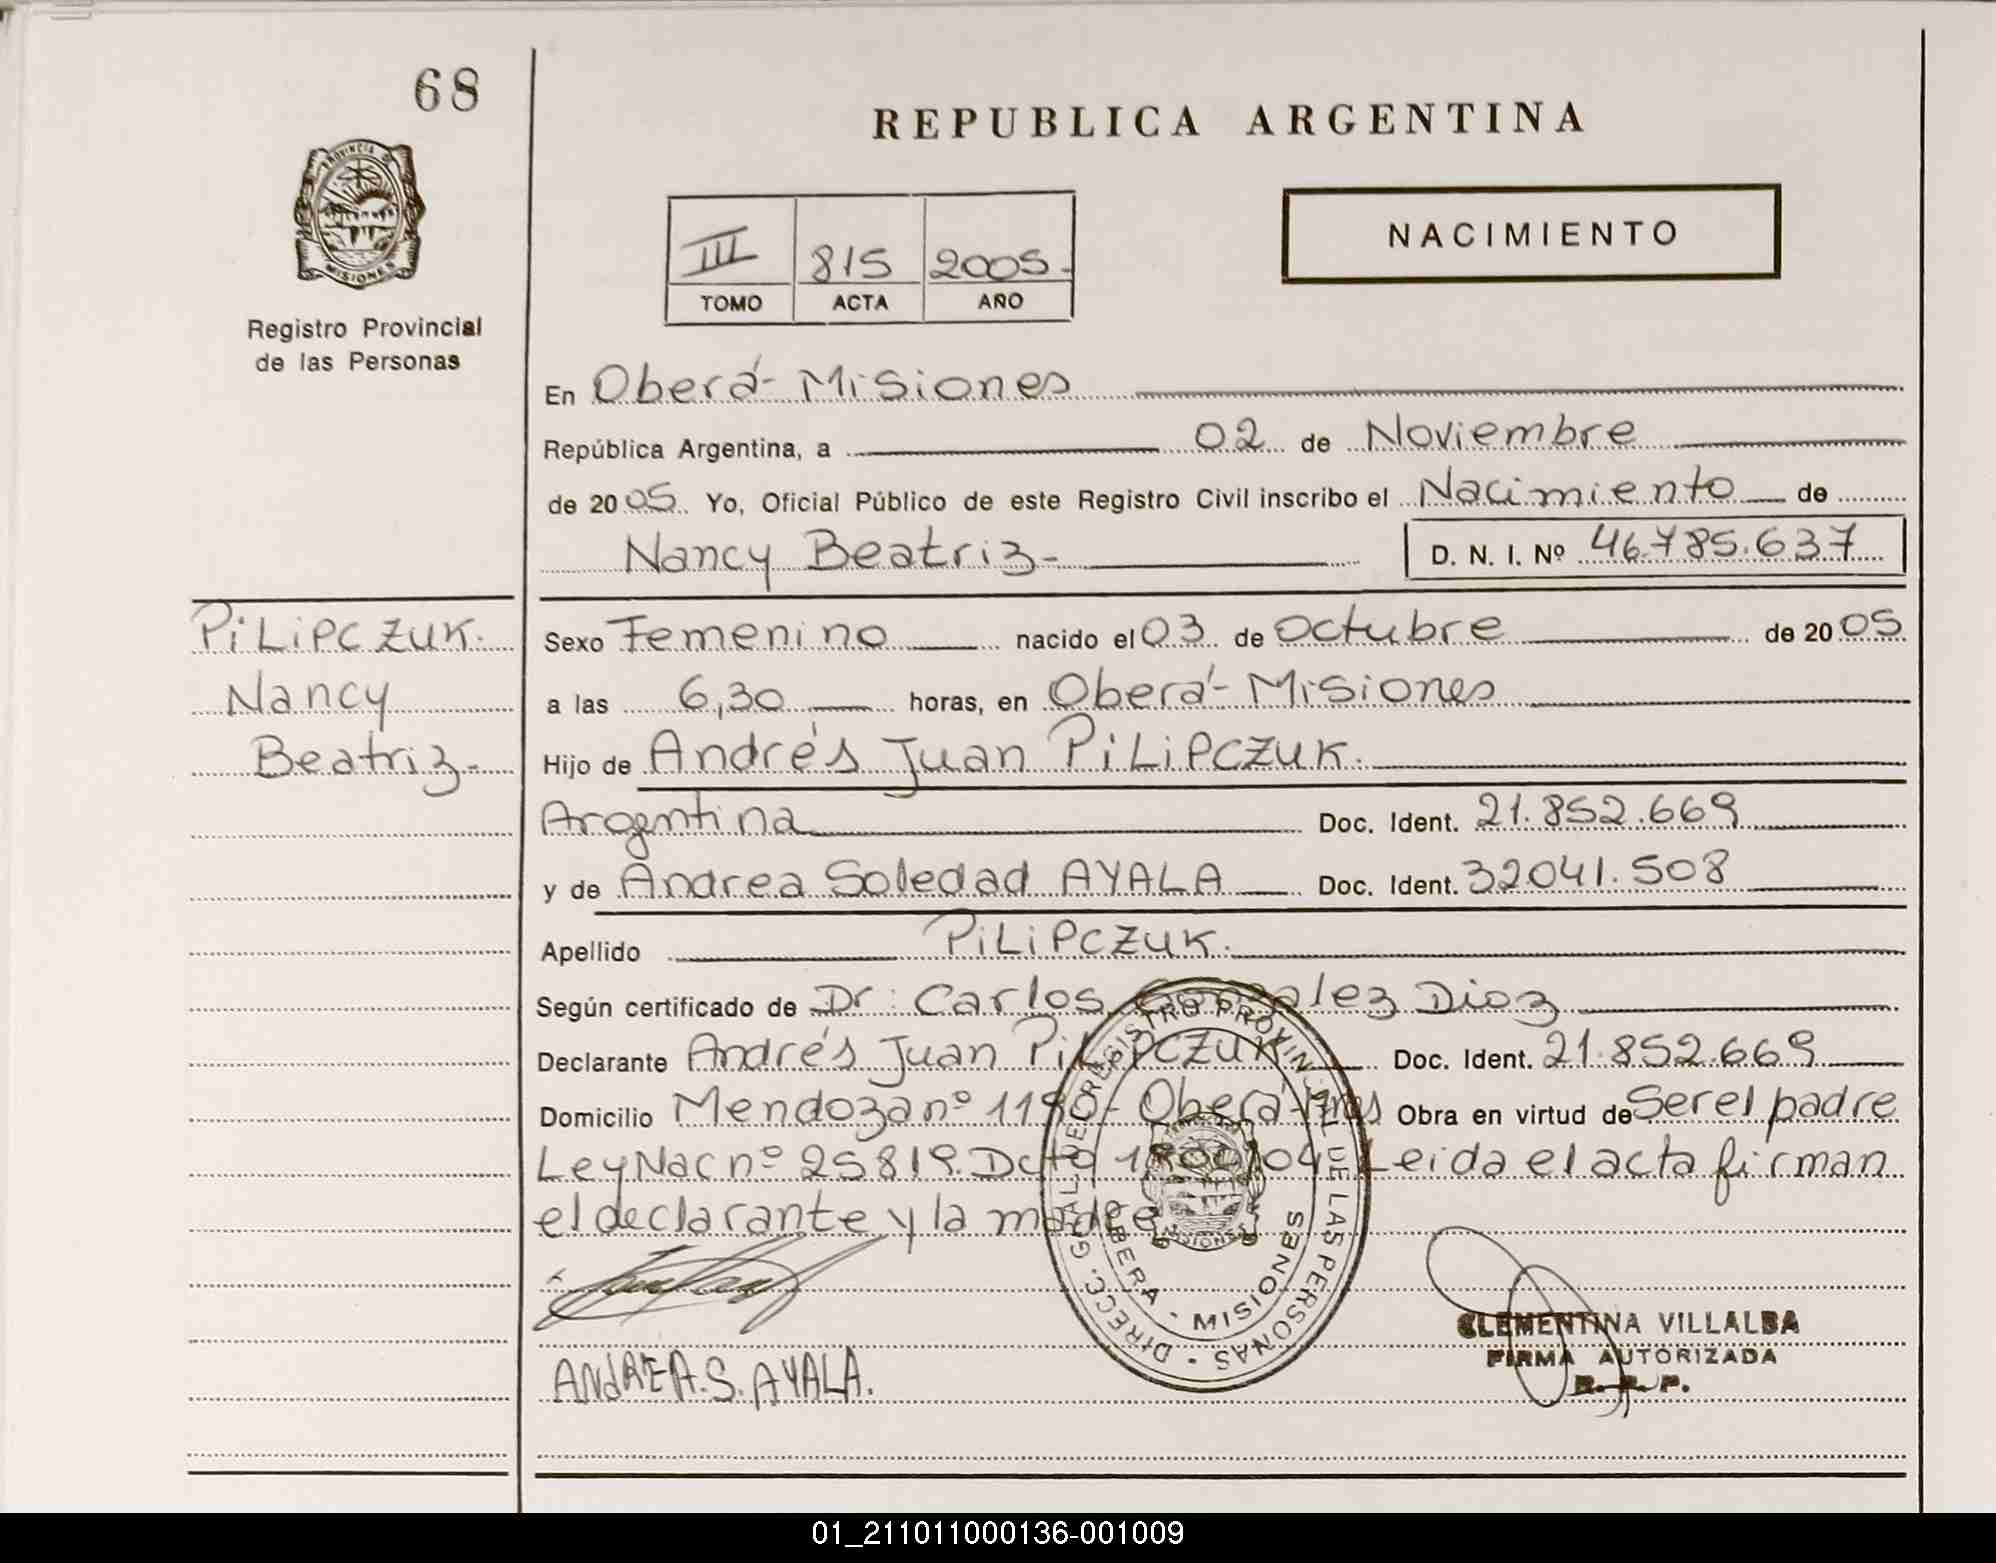 68
REPUBLICA ARGENTINA
PROVINCIA DE
MISIONES
III 815 2005
TOMO ACTA AÑO
NACIMIENTO
Registro Provincial
de las Personas
En Oberá - Misiones
República Argentina, a 02 de Noviembre
de 2005 Yo, Oficial Público de este Registro Civil inscribo el Nacimiento de
Nancy Beatriz - D. N. I. Nº 46.785.637
PILIPCZUK.
Nancy
Beatriz -
Sexo Femenino nacido el 03 de Octubre de 2005
a las 6,30 horas, en Oberá - Misiones
Hijo de Andrés Juan PILIPCZUK.
Argentina Doc. Ident. 21.852.669
y de Andrea Soledad AYALA Doc. Ident. 32041.508
Apellido PILIPCZUK.
Según certificado de Dr: Carlos Gonzalez Dioz
Declarante Andrés Juan PILIPCZUK Doc. Ident. 21.852.669
Domicilio Mendoza nº 1190 - Oberá - Mnes Obra en virtud de Ser el padre
Ley Nac nº 25819. Dcto 1800/04. Leida el acta firman
el declarante y la madre
DIRECC. GRAL DE REGISTRO PROVINCIAL DE LAS PERSONAS
OBERA - MISIONES
MISIONES
ANDREA.S.AYALA.
CLEMENTINA VILLALBA
FIRMA AUTORIZADA
R. P. P.
01_211011000136-001009